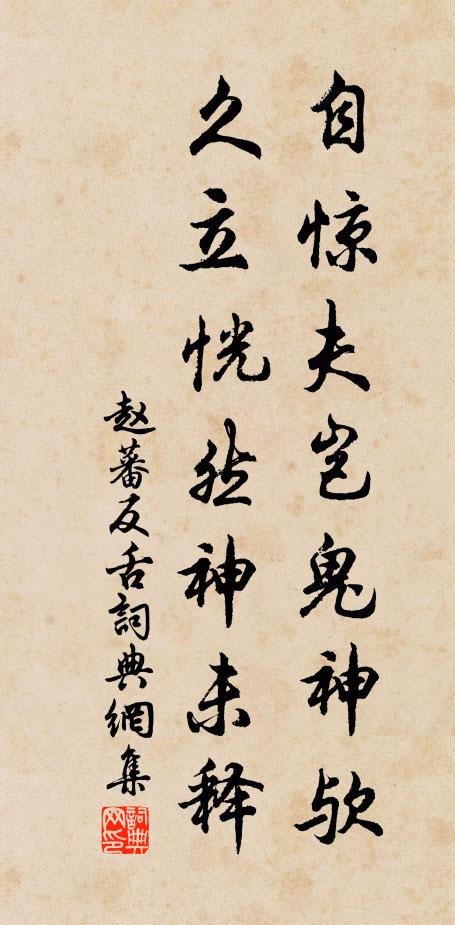 自惊夫岂鬼神欤
久立恍然神未释
赵蕃反舌詞典網集
詞典网印